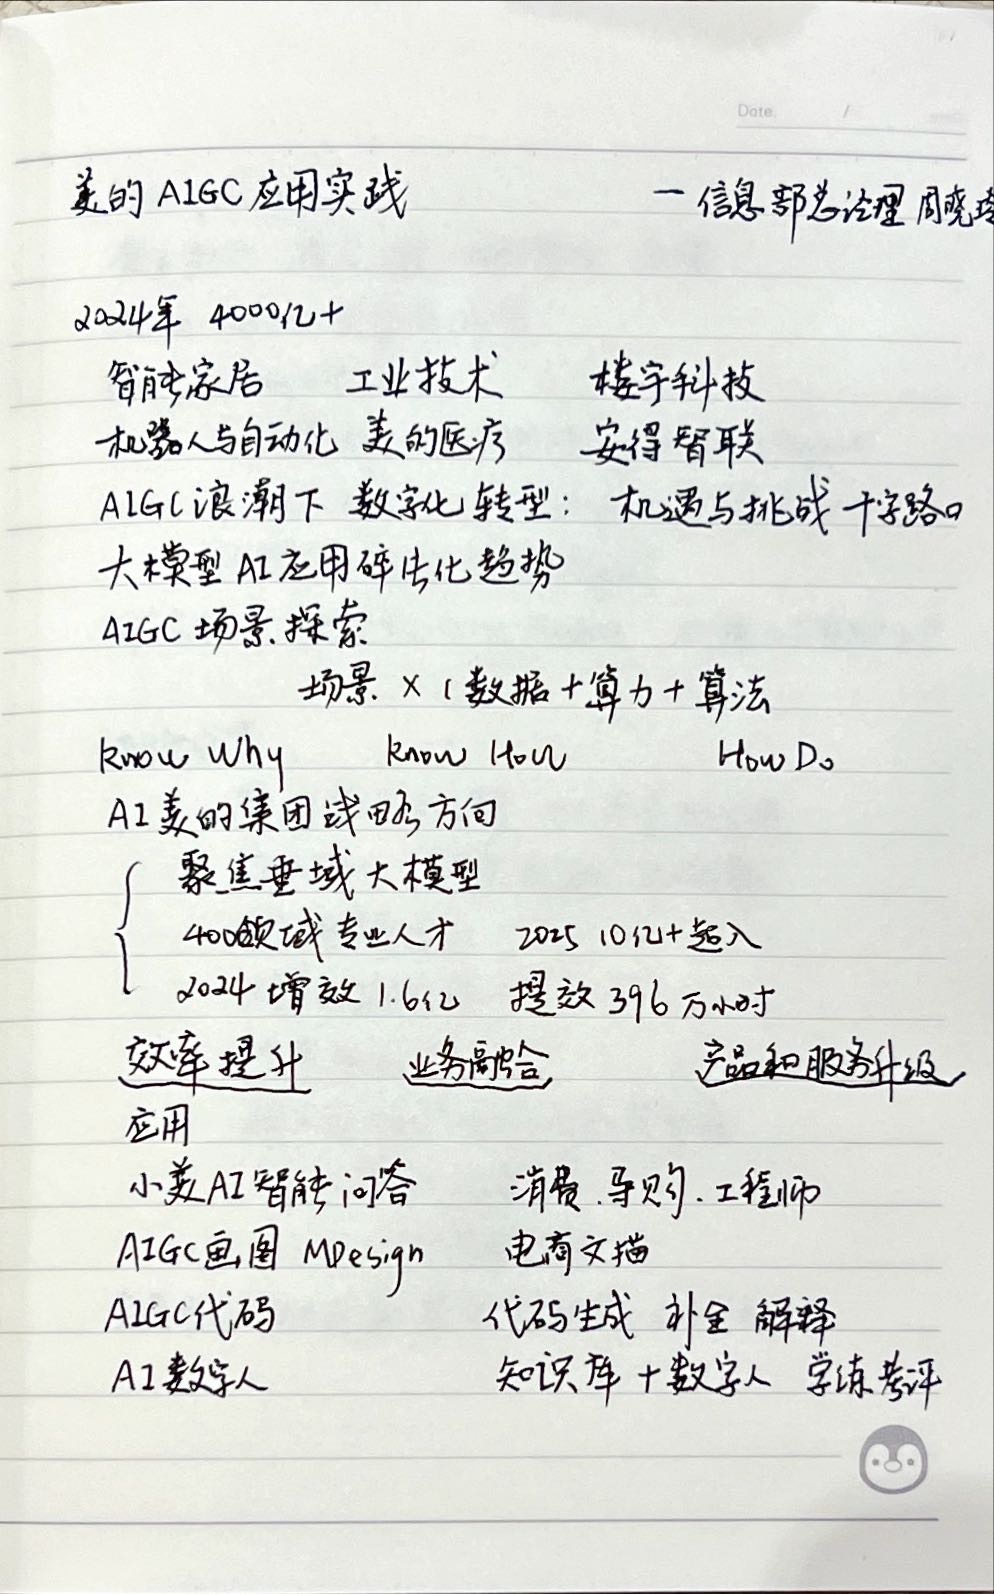 Date. /
美的AIGC应用实践 — 信息部总经理 周晓
2024年 4000亿+
智能家居 工业技术 楼宇科技
机器人与自动化 美的医疗 安得智联
AIGC浪潮下 数字化转型: 机遇与挑战 十字路口
大模型AI应用碎片化趋势
AIGC 场景探索
场景 × (数据+算力+算法
Know Why Know How How Do
AI美的集团战略方向
聚焦垂域大模型
400领域专业人才 2025 10亿+ 入
2024增效1.6亿 提效396万小时
效率提升 业务融合 产品和服务升级
应用
小美AI智能问答 消费.导购.工程师
AIGC画图 MDesign 电商文描
AIGC代码 代码生成 补全 解释
AI数字人 知识库+数字人 学练考评